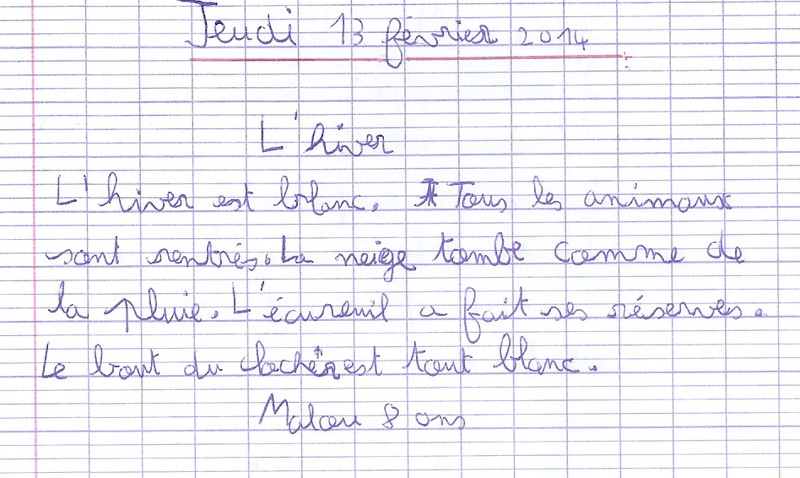 Jeudi 13 février 2014
L'hiver
L'hiver est blanc. Tous les animaux
sont rentrés. La neige tombe comme de
la pluie. L'écureuil a fait ses réserves.
Le bout du clocher est tout blanc.
Malou 8 ans